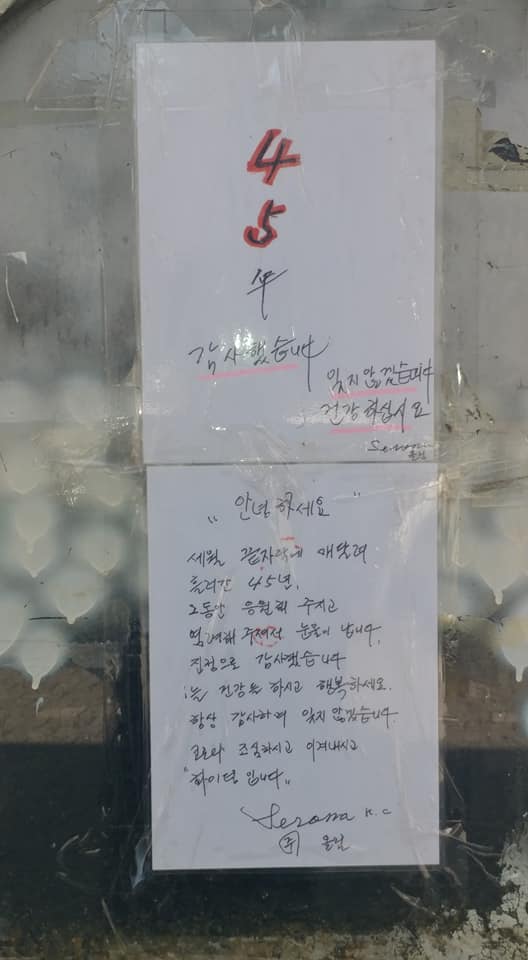 4
5
年
감사했습니다
잊지 않겠습니다
건강하십시요
Serona
"안녕하세요"
세월 끝자락에 매달려
흘러간 45년.
그동안 응원해 주시고
격려해 주셔서 눈물이 납니다.
진정으로 감사했습니다
늘 건강들 하시고 행복하세요.
항상 감사하며 잊지 않겠습니다.
코로나 조심하시고 이겨내시고
"화이팅 입니다"
Serona K.C
㈜